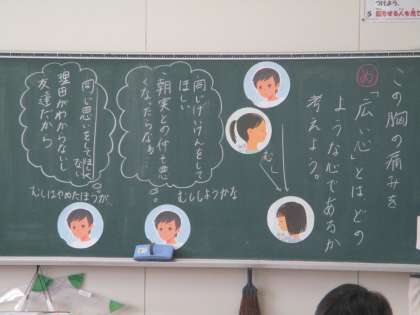 この胸の痛みを
め
「広い心」とはどの
ような心であるか
考えよう。
むし
同じけいけんをして
ほしい
朝実との仲も悪
くなったらなぁ
むししようかな
同じ思いをしてほしく
ない
理由がわからないし
友達だから
むしはやめたほうが、
つけよう。